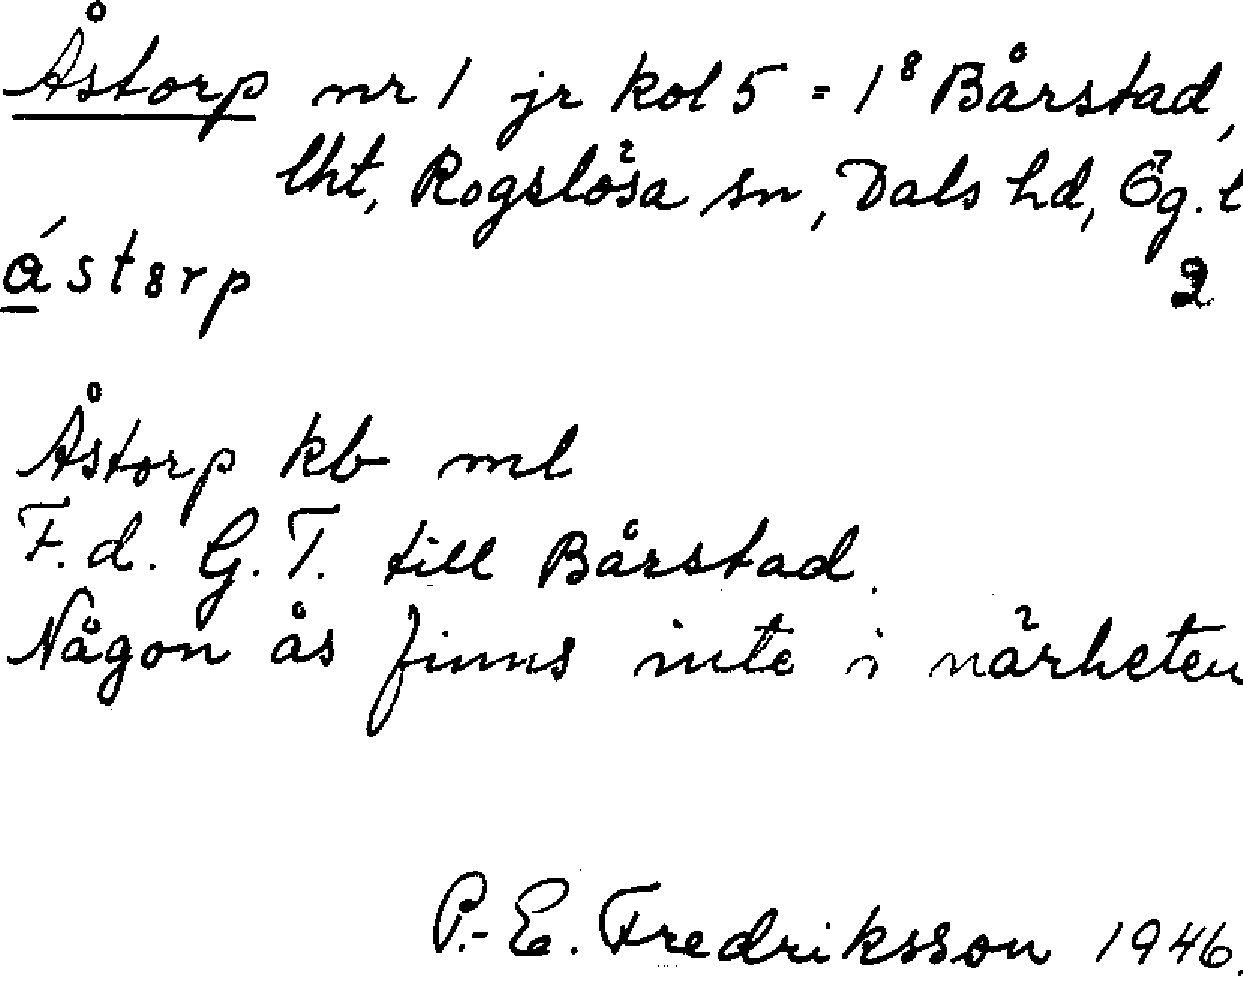 Åstorp nr 1 jr kol 5 = 1⁸ Bårstad,
lht, Rogslösa sn, Dals hd, Ög. l
2
ástorp
Åstorp kb ml
F.d. G.T. till Bårstad.
Någon ås finns inte i närheten
P.-E. Fredriksson 1946.